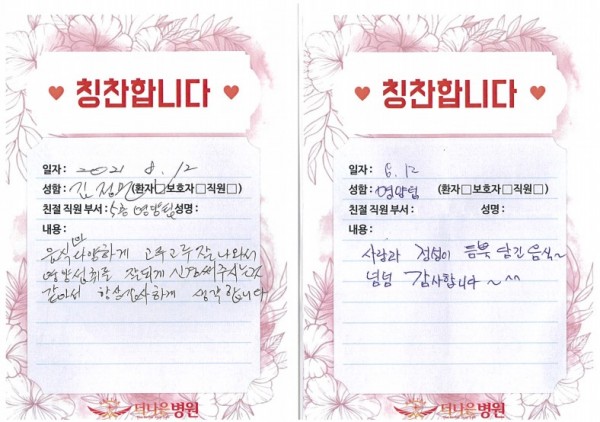 칭찬합니다
일자 : 2021 8. 12
성함 : 김 정 (환자□보호자□직원□)
친절 직원 부서 : 5층 영양팀 성명 :
내용 :
음식 다양하게 고루고루 잘 나와서
영양섭취를 잘되게 신경써주시는것
같아서 항상 감사하게 생각합니다
더나은병원
칭찬합니다
일자 : 8. 12
성함 : 영양팀 (환자□보호자□직원□)
친절 직원 부서 : 성명 :
내용 :
사랑과 정성이 듬뿍 담긴 음식~
넘넘 감사합니다 ~ ^^
더나은병원